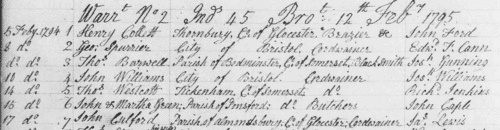 Warrt. No 2 Ind 45 Brot. 12th Feby 1795
5 Feby. 1794 1 Henry Collett Thornbury, C. of Glocester Brazier &c John Ford
8 do. 2 Geo. Spurrier City of Bristol Cordwainer Edwd. T. Cann
do do. 3 Thos. Barwell Parish of Bedminster, C. of Somerset, Black Smith Jos. Gunning
10 do. 4 John Williams City of Bristol Cordwainer Jos. Williams
14 do 5 Thos. Westcott Tickenham, C. of Somerset, do. Richd. Jenkins
15 do. 6 John & Martha Green; Parish of do. Butchers John Caple
17 do. 7 John Parish of Almondsbury, C. of Glocester; Cordwainer Jas. Lewis